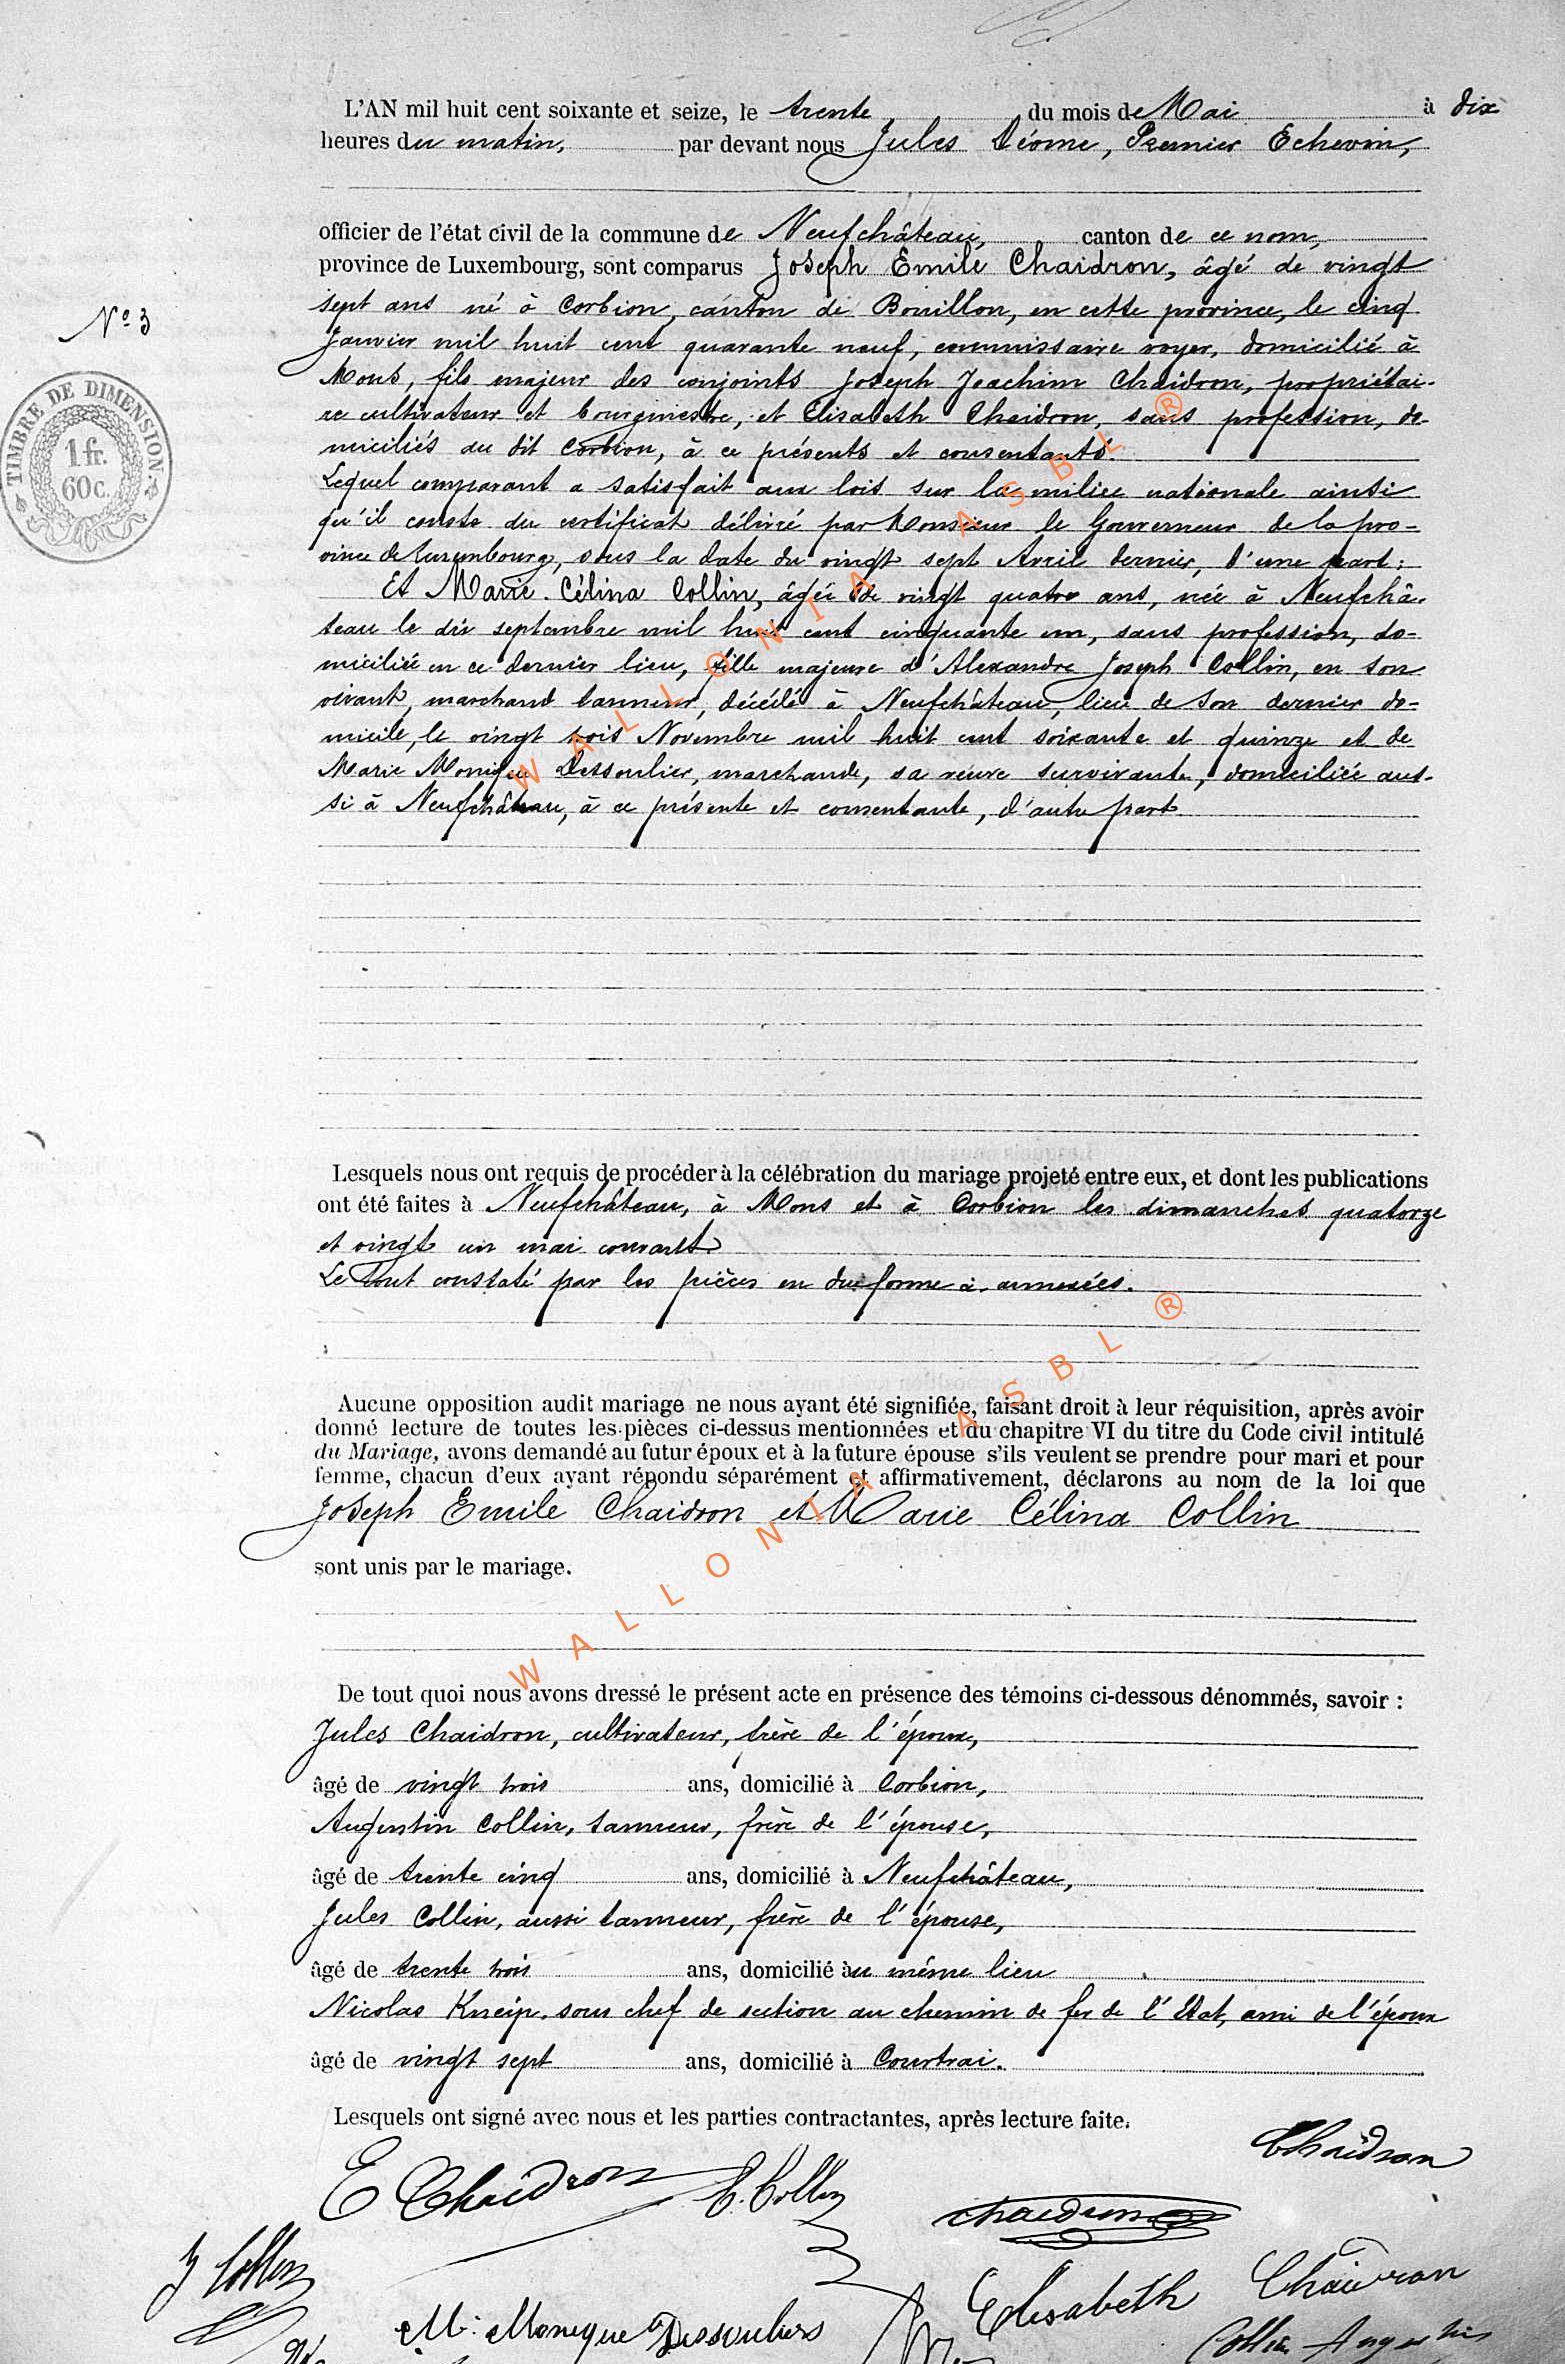 L'AN mil huit cent soixante et seize, le trente du mois de Mai à dix
heures du matin, par devant nous Jules Déome, Premier Echevin,
officier de l'état civil de la commune de Neufchâteau, canton de ce nom,
province de Luxembourg, sont comparus Joseph Emile Chaidron, âgé de vingt
sept ans né à Corbion, canton de Bouillon, en cette province, le cinq
Janvier mil huit cent quarante neuf, commissaire voyer, domicilié à
Mons, fils majeur des conjoints Joseph Joachim Chaidron, propriétai-
re cultivateur et bourgmestre, et Elisabeth Chaidron, sans profession, do-
miciliés au dit Corbion, à ce présents et consentants.
Lequel comparant a satisfait aux lois sur la milice nationale ainsi
qu'il conste du certificat délivré par Monsieur le Gouverneur de la pro-
vince de Luxembourg, sous la date du vingt sept Avril dernier, d'une part;
Et Marie Célina Collin, âgée de vingt quatre ans, née à Neufchâ-
teau le dix septembre mil huit cent cinquante un, sans profession, do-
miciliée en ce dernier lieu, fille majeure d'Alexandre Joseph Collin, en son
vivant, marchand tanneur, décédé à Neufchâteau, lieu de son dernier do-
micile, le vingt trois Novembre mil huit cent soixante et quinze et de
Marie Monique Dessoulier, marchande, sa veuve survivante, domiciliée aus-
si à Neufchâteau, à ce présente et consentante, d'autre part.
N° 3
TIMBRE DE DIMENSION.
1 fr.
60 c.
Lesquels nous ont requis de procéder à la célébration du mariage projeté entre eux, et dont les publications
ont été faites à Neufchâteau, à Mons et à Corbion les dimanches quatorze
et vingt un mai courant
Le tout constaté par les pièces en due forme ci-annexées.
Aucune opposition audit mariage ne nous ayant été signifiée, faisant droit à leur réquisition, après avoir
donné lecture de toutes les pièces ci-dessus mentionnées et du chapitre VI du titre du Code civil intitulé
du Mariage, avons demandé au futur époux et à la future épouse s'ils veulent se prendre pour mari et pour
femme, chacun d'eux ayant répondu séparément et affirmativement, déclarons au nom de la loi que
Joseph Emile Chaidron et Marie Célina Collin
sont unis par le mariage.
De tout quoi nous avons dressé le présent acte en présence des témoins ci-dessous dénommés, savoir :
Jules Chaidron, cultivateur, frère de l'époux,
âgé de vingt trois ans, domicilié à Corbion,
Augustin Collin, tanneur, frère de l'épouse,
âgé de trente cinq ans, domicilié à Neufchâteau,
Jules Collin, aussi tanneur, frère de l'épouse,
âgé de trente trois ans, domicilié au même lieu
Nicolas Kneip, sous chef de section au chemin de fer de l'Etat, ami de l'époux
âgé de vingt sept ans, domicilié à Courtrai.
Lesquels ont signé avec nous et les parties contractantes, après lecture faite.
Chaidron
E Chaidron C. Collin
Chaidron
J Collin
Elisabeth Chaidron
M: Monique Dessouliers
Collin Augustin
WALLONIA ASBL ®
WALLONIA ASBL ®